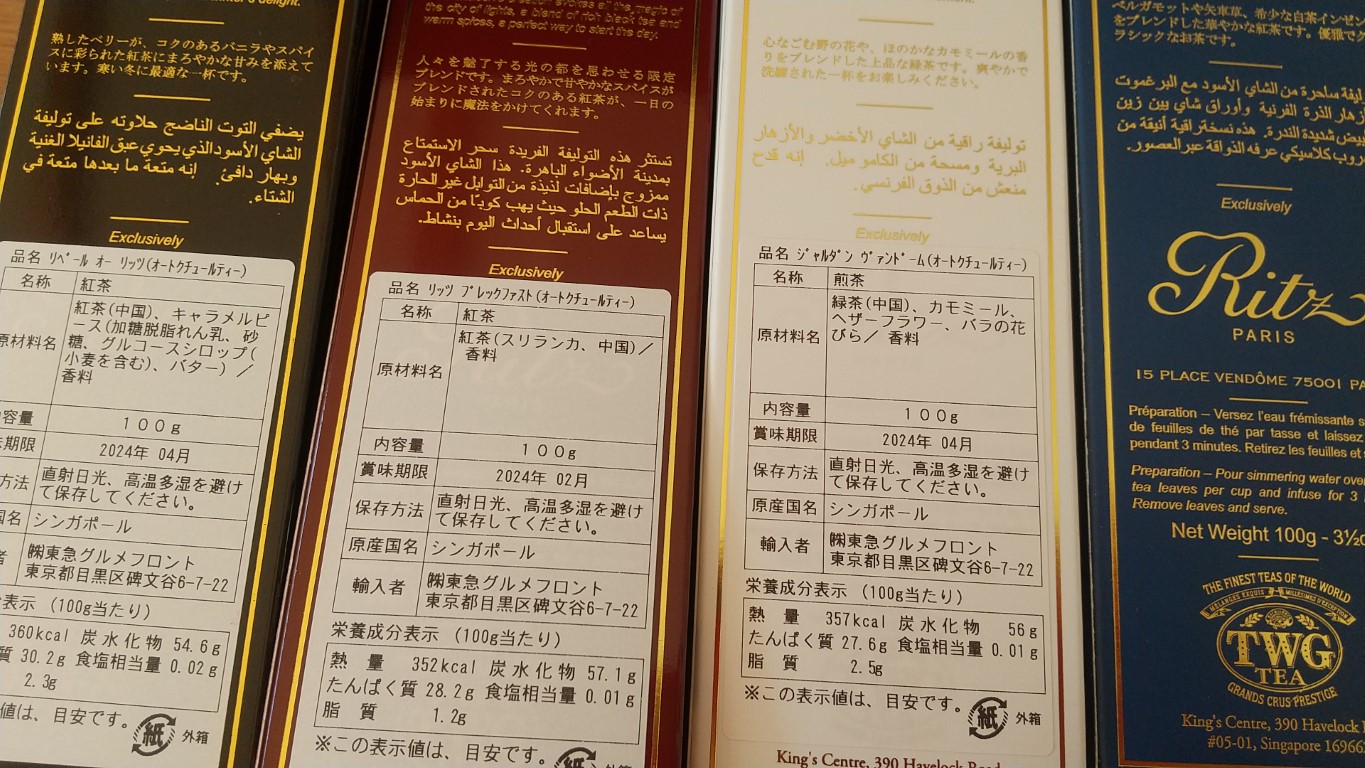 winter's delight.
熟したベリーが、コクのあるバニラやスパイ
スに彩られた紅茶にまろやかな甘みを添えて
います。寒い冬に最適な一杯です。
يضفي التوت الناضج حلاوته على توليفة
الشاي الأسود الذي يحوي عبق الفانيلا الغنية
وبهار دافئ. إنه متعة ما بعدها متعة في
الشتاء.
Exclusively
品名 リペール オー リッツ(オートクチュールティー)
名称 紅茶
原材料名 紅茶(中国)、キャラメルピ
ース(加糖脱脂れん乳、砂
糖、グルコースシロップ(
小麦を含む)、バター) /
香料
内容量 100g
賞味期限 2024年 04月
方法 直射日光、高温多湿を避け
て保存してください。
国名 シンガポール
者 ㈱東急グルメフロント
東京都目黒区碑文谷6-7-22
表示 (100g当たり)
360kcal 炭水化物 54.6g
質 30.2g 食塩相当量 0.02g
2.3g
値は、目安です。 紙 外箱
evokes all the magic of
the city of lights, a blend of rich black tea and
warm spices, a perfect way to start the day.
人々を魅了する光の都を思わせる限定
ブレンドです。まろやかで甘やかなスパイスが
ブレンドされたコクのある紅茶が、一日の
始まりに魔法をかけてくれます。
تستثر هذه التوليفة الفريدة سحر الاستمتاع
بمدينة الأضواء الباهرة. هذا الشاي الأسود
ممزوج بإضافات لذيذة من التوابل غير الحارة
ذات الطعم الحلو حيث يهب كوبًا من الحماس
يساعد على استقبال أحداث اليوم بنشاط.
Exclusively
品名 リッツ ブレックファスト(オートクチュールティー)
名称 紅茶
原材料名 紅茶(スリランカ、中国)/
香料
内容量 100g
賞味期限 2024年 02月
保存方法 直射日光、高温多湿を避け
て保存してください。
原産国名 シンガポール
輸入者 ㈱東急グルメフロント
東京都目黒区碑文谷6-7-22
栄養成分表示 (100g当たり)
熱 量 352kcal 炭水化物 57.1g
たんぱく質 28.2g 食塩相当量 0.01g
脂 質 1.2g
※この表示値は、目安です。 紙 外箱
心なごむ野の花や、ほのかなカモミールの香
りをブレンドした上品な緑茶です。爽やかで
洗練された一杯をお楽しみください。
توليفة راقية من الشاي الأخضر والأزهار
البرية ومسحة من الكاموميل. إنه قدح
منعش من الذوق الفرنسي.
Exclusively
品名 ジャルダン ヴァンドーム(オートクチュールティー)
名称 煎茶
原材料名 緑茶(中国)、カモミール、
ヘザーフラワー、バラの花
びら/ 香料
内容量 100g
賞味期限 2024年 04月
保存方法 直射日光、高温多湿を避け
て保存してください。
原産国名 シンガポール
輸入者 ㈱東急グルメフロント
東京都目黒区碑文谷6-7-22
栄養成分表示 (100g当たり)
熱 量 357kcal 炭水化物 56g
たんぱく質 27.6g 食塩相当量 0.01g
脂 質 2.5g
※この表示値は、目安です。 紙 外箱
King's Centre, 390 Havelock Road
ベルガモットや矢車草、希少な白茶インゼン
をブレンドした華やかな紅茶です。優雅でク
ラシックなお茶です。
ليفة ساحرة من الشاي الأسود مع البرغموت
زهار الذرة الفرنية وأوراق شاي يين زين
بيض شديدة الندرة. هذه نسخة راقية أنيقة من
روب كلاسيكي عرفه الذواقة عبر العصور.
Exclusively
Ritz
PARIS
15 PLACE VENDÔME 75001 PA
Préparation – Versez l'eau frémissante s
de feuilles de thé par tasse et laissez
pendant 3 minutes. Retirez les feuilles et
Preparation – Pour simmering water over
tea leaves per cup and infuse for 3
Remove leaves and serve.
Net Weight 100g - 3½o
THE FINEST TEAS OF THE WORLD
MÉLANGES EXQUIS MILLÉSIMES D'EXCEPTION
TWG
TEA
GRANDS CRUS PRESTIGE
King's Centre, 390 Havelock
#05-01, Singapore 16966